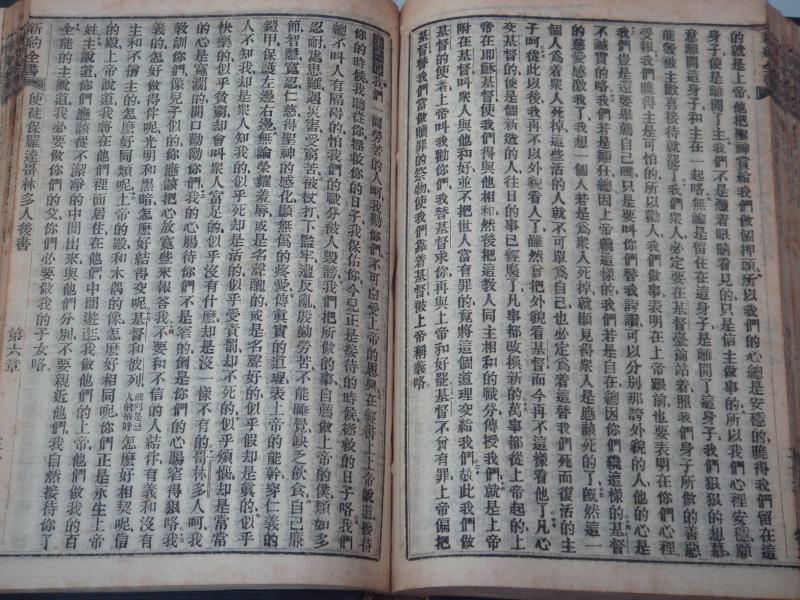 的就是上帝他把聖神賞給我們做個押頭所以我們的心總是安穩的曉得我們留在這
身子便是離開了主我們不是靠着眼睛看見的只是信主做事的所以我們心裡安穩願
意離開這身子和主在一起略無論是留住在這身子是離開了這身子我們狠狠的想慕
能彀被主歡喜接待就罷了我們衆人必定要在基督臺前站着照我們身子所做的善惡
受報我們曉得主是可怕的所以勸人我們做事表明在上帝跟前也要表明在你們心裡
我們豈是還要舉薦自己嗎只是要叫你們替我誇讚可以分別那誇外貌的人他的心是
不誠實的略我們若是顛狂總因上帝纔這樣的我們若是自在總因你們纔這樣的基督
的慈愛感激我了我想一個人若是爲衆人死掉就顯見得衆人是應該死的了既然這一
個人爲着衆人死掉這些活的人就不可單爲自己也必定爲着這替我們死而復活的主
子呵從此以後我再不以外貌看人了雖然曾把外貌看基督而今再不這樣看他了凡心
交基督的便是個新造的人往日的事已經廢了凡事都改換新的萬事都從上帝起的上
帝在耶穌基督使我們得與他相和然後把這教人同主相和的職分傳授我們就是上帝
附在基督叫衆人與他和好並不把世人當有罪的竟將這個道理交給我們故此我們做
基督的使者上帝叫我勸你們我替基督求你再與上帝和好罷基督不曾有罪上帝偏把
基督替我們當做贖罪的祭物使我們靠着基督被上帝稱義略
我們一同勞苦的人呵我勸你們不可白受上帝的恩典在經書上上帝說道接待
你的時候我聽從你拯救你的日子我保佑你今兒正是接待的時候拯救的日子略我們
總不叫人有隔碍的怕我們的職分被人毀謗我們把所做的事自薦做上帝的僕類如多
忍耐處患難遇災害受窮苦被杖打下監牢遭反亂殷勤勞苦不能睡覺缺乏飲食自己廉
節智慧寬忍仁慈得聖神的感化顯無僞的疼愛傳眞實的道理表上帝的能幹穿仁義的
鎧甲保護左邊右邊無論榮耀羞辱或是名聲醜的或是名聲好的似乎假却是眞的似乎
人不知我却是衆人知我的似乎死却是活的似乎受責罰却不死的似乎煩惱却是常常
快樂的似乎貧窮却會叫衆人富足的似乎沒有什麽却是沒一樣不有的哥林多人呵我
的心是寬濶的開口勸勸你們我的心腸待你們不是窄的倒是你們的心腸窄得狠略我
教訓你們像兒子似的你們應該把心放寬些來報答我不要和不信的人結伴有義和沒有
義的怎好做得伴呢光明和黑暗怎麽好結得交呢基督和彼列怎麽好相契呢信
主和不信主的怎麽好同類呢上帝的殿和木偶的像怎麽好相同呢你們正是永生上帝
的殿上帝說道我將在他們裡面居住在他們中間遊逛我做他們的上帝他們做我的百
姓主說道你們應該從不潔凈的中間出來與他們分別不要親近他們我自然接待你了
全能的主說道我必要做你們的父你們必要做我的子女略
新約全書　使徒保羅達哥林多人後書　第六章